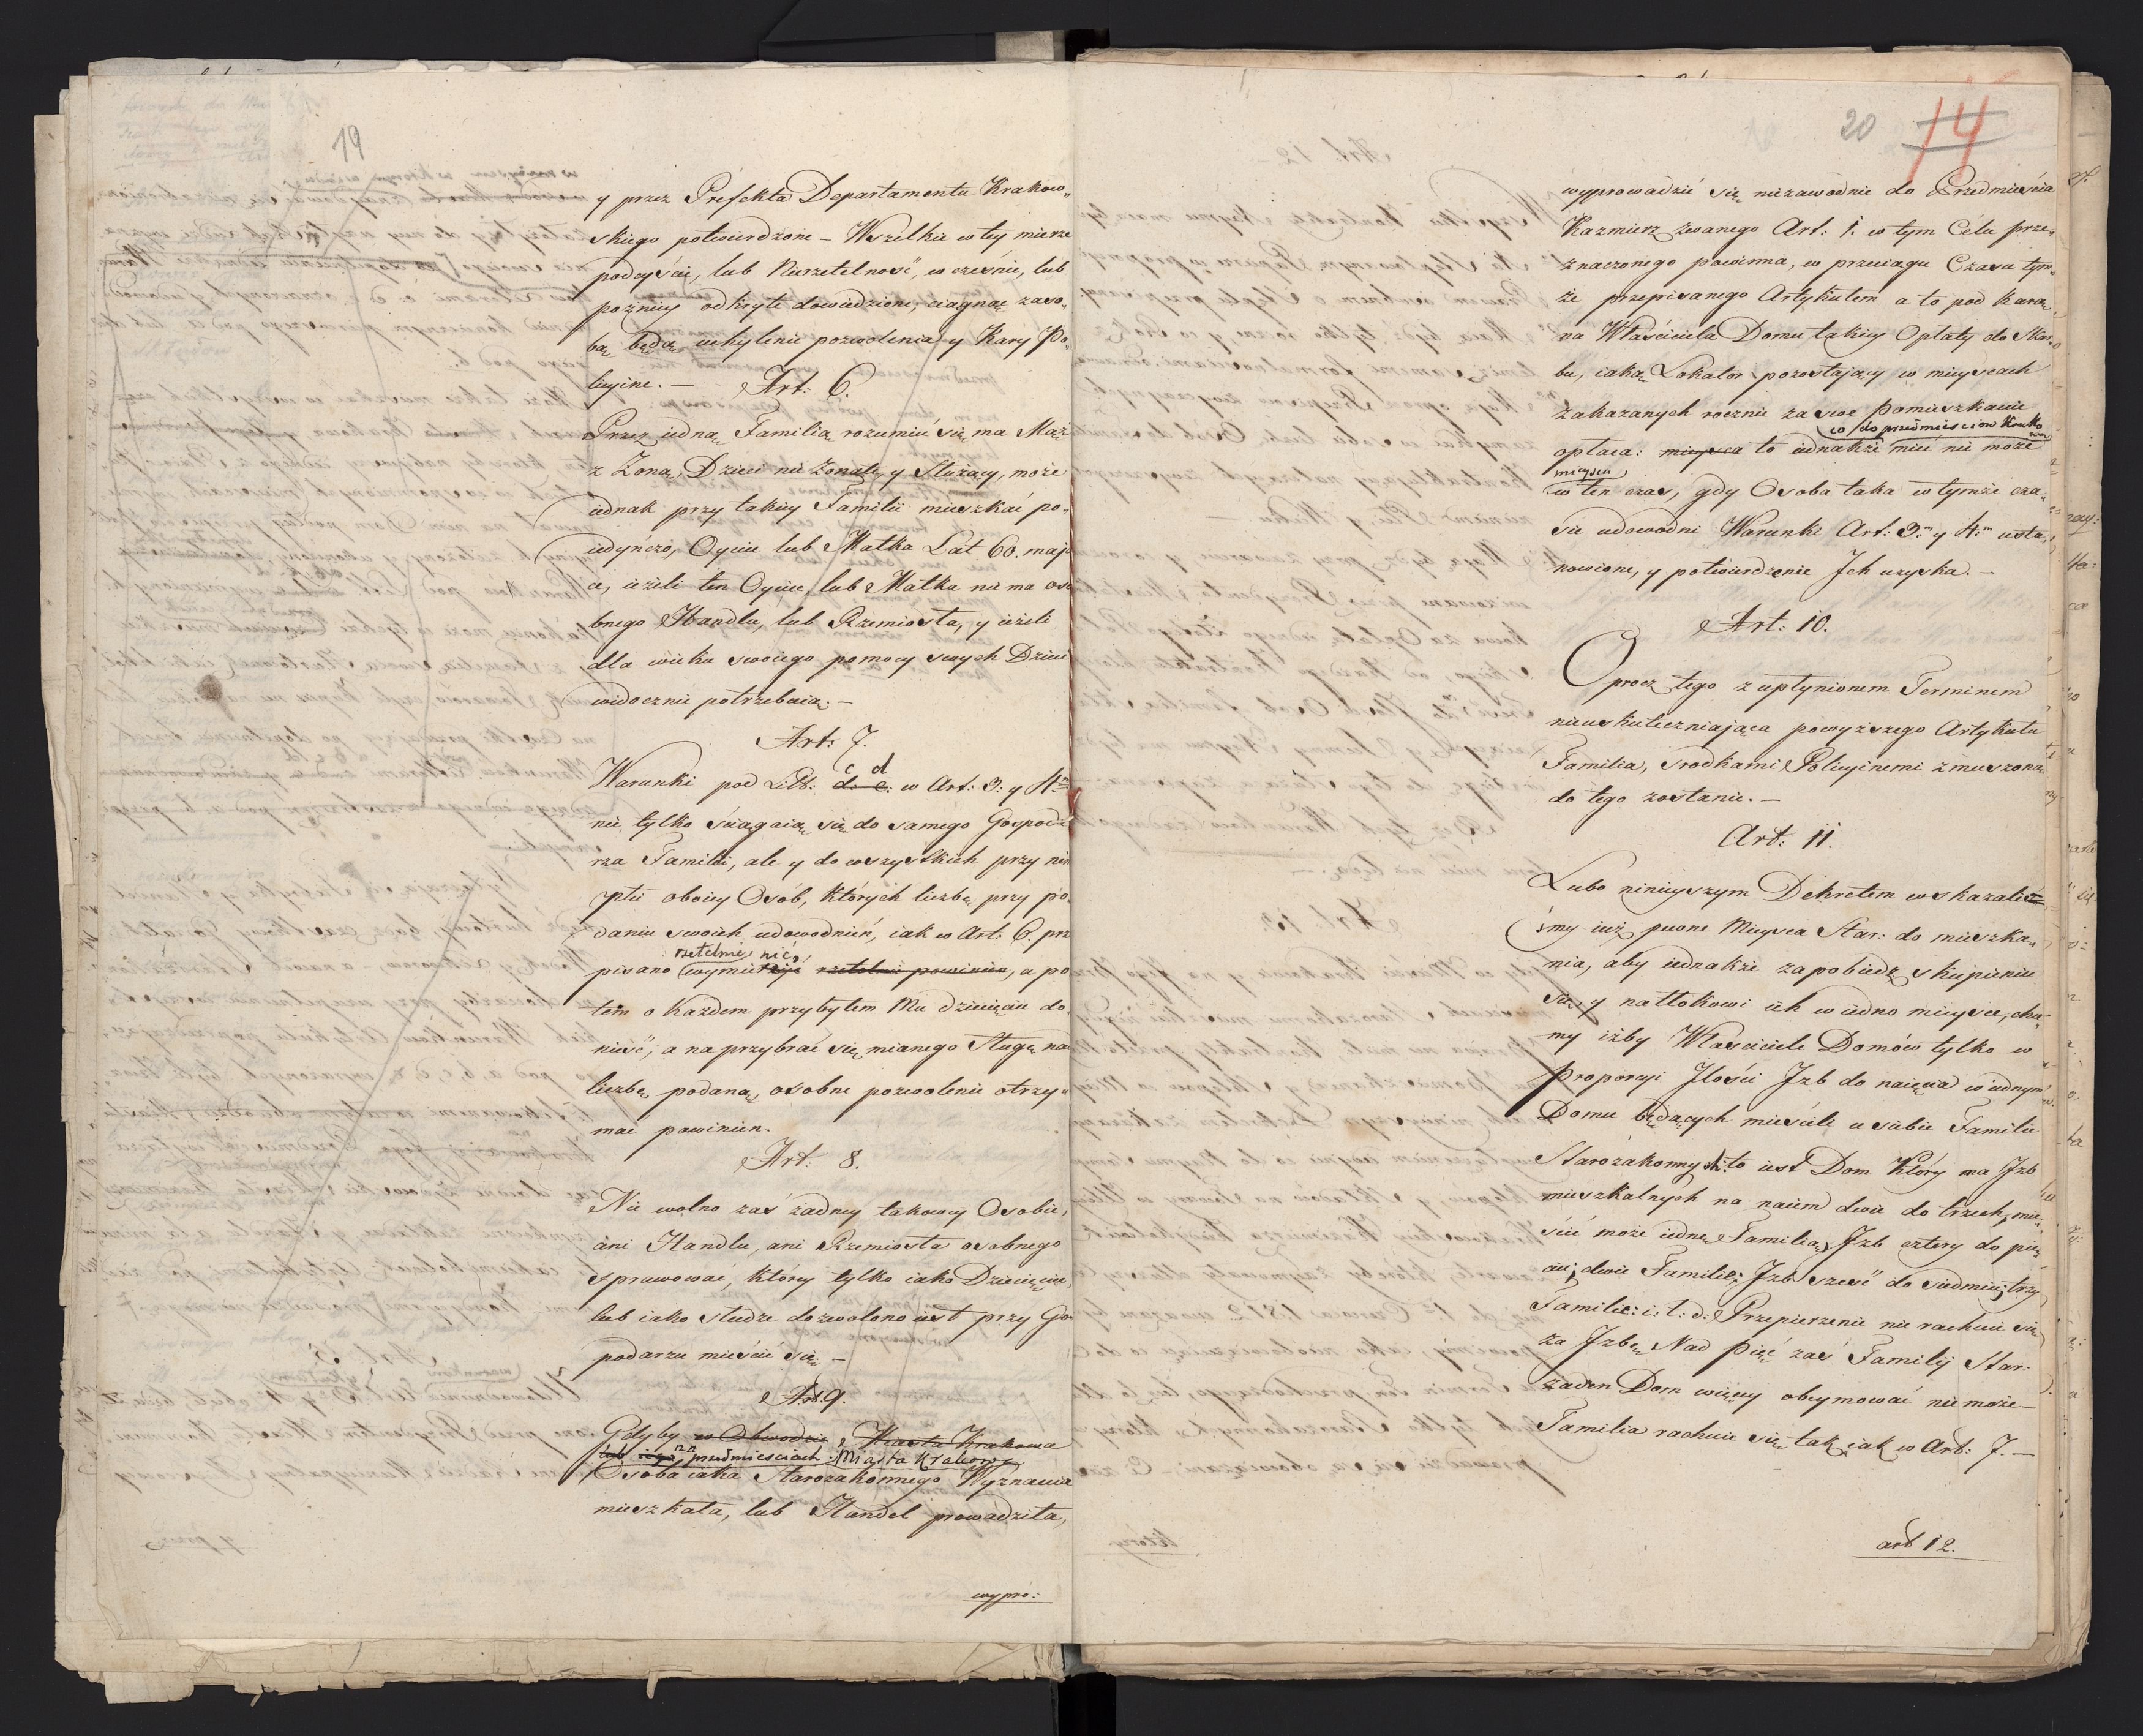 19
y przez Prefekta Departamentu Krakow„
skiego potwierdzone – Wszelkie w tey mierze
podeyście, lub Nierzetelność, w cześnie, lub
pożniey odkryte dowiedzione, ciągnąć zaso„
bą będą uchylenie pozwolenia y Kary Po„
licyine. –
Art: 6.
Przez iedną Familią rozumieć się ma Mąż
z Żoną, Dzieci nie żonate, y Służący, może
iednak przy takiey Familii mieszkać po„
iedyńczo, Oyciec lub Matka Lat 60. mają
cy, ieżeli ten Oyciec, lub Matka nie ma oso
bnego Handlu, lub Rzemiosła, y ieżeli
dla wieku swoiego pomocy swych Dzieci
widocznie potrzebuią. –
Art: 7.
c d
Warunki pod Litt: d. e. w Art: 3: y 4m
nie tylko ściągaią się do samego Gospoda
rza Familii, ale y do wszystkich przy nim
płci oboiey Osób, których liczbę przy po
daniu swoich udowodnień, iak w Art: 6. prze
rzetelnie nić
pisano wymie rzetelnie powinien, a po
tem o każdem przybyłem Mu dziecięciu do
nieść; a na przybrać się mianego Sługę nad
liczbę podaną, osobne pozwolenie otrzy„
mać powinien.
Art: 8.
Nie wolno zaś żadney takowey Osobie,
ani Handlu, ani Rzemiosła osobnego
sprawować, który tylko iako Dziecięciu,
lub iako słudze dozwolono iest przy Go
podarzu mieścić się –
Art. 9.
Gdyby w Obwodzie Miasta Krakowa
lub iego przedmieściach Miasta Krakowa
Osoba iaka Starozakonnego Wyznania
mieszkała, lub Handel prowadziła,
wypro:
20 14
wyprowadzić się niezawodnie do Przedmieścia
Kazmierz zwanego Art: 1. w tym Célu prze„
znaczonego powinna, w przeciągu Czasu tym„
że przepisanego Artykułem a to pod karą
na Właściciela Domu takiey Opłaty do Skar„
bu, iaką Lokator pozostający w mieyscach
zakazanych rocznie za swe pomieszkanie
co do przedmieściow Krako
wa
opłaca: mieysca to iednakże mieć nie może
mieysca
w ten czas, gdy Osoba taka w tymże cza„
sie udowodni Warunki Art: 3m y 4m usta„
nowione, y potwierdzenie Jch uzyska. –
Art: 10.
Oprocz tego z upłynionem Terminem
nieuskuteczniająca powyższego Artykułu
Familia, srodkami Policyinemi zmuszoną
do tego zostanie. –
Art: 11.
Lubo ninieyszym Dekretem wskazali
śmy iuż pewne Mieysca Star: do mieszka„
nia, aby iednakże zapobiedz skupieniu
się y natłokowi ich w iedno mieysce, chce„
my iżby Właściciele Domów tylko w
proporcyi Jlości Jzb do naięcia w iednym
Domu będących mieścili u siebie Familie
Starozakonnych: to iest Dom który ma Jzb
mieszkalnych na naiem dwie do trzech, mie„
ścić może iednę Familią, Jzb cztery do pię„
ciu; dwie Familie; Jzb sześć do siedmiu; trzy
Familie: i: t: d: Przepierzenie nie rachuie się
za Jzbę. Nad pięć zaś Familij Star:
żaden Dom więcey obeymować nie może –
Familia rachuie się tak, iak w Art: 7. –
art 12.